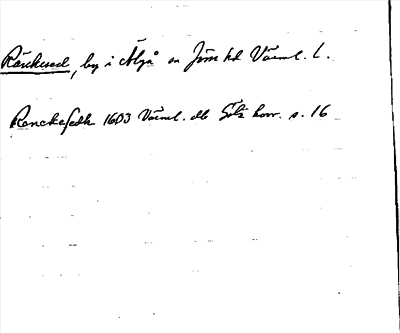 Ränkesed, by i Älgå sn Jösse hd Värml. l.
Ranckesedh 1603 Värml. db Sölz korr. s. 16